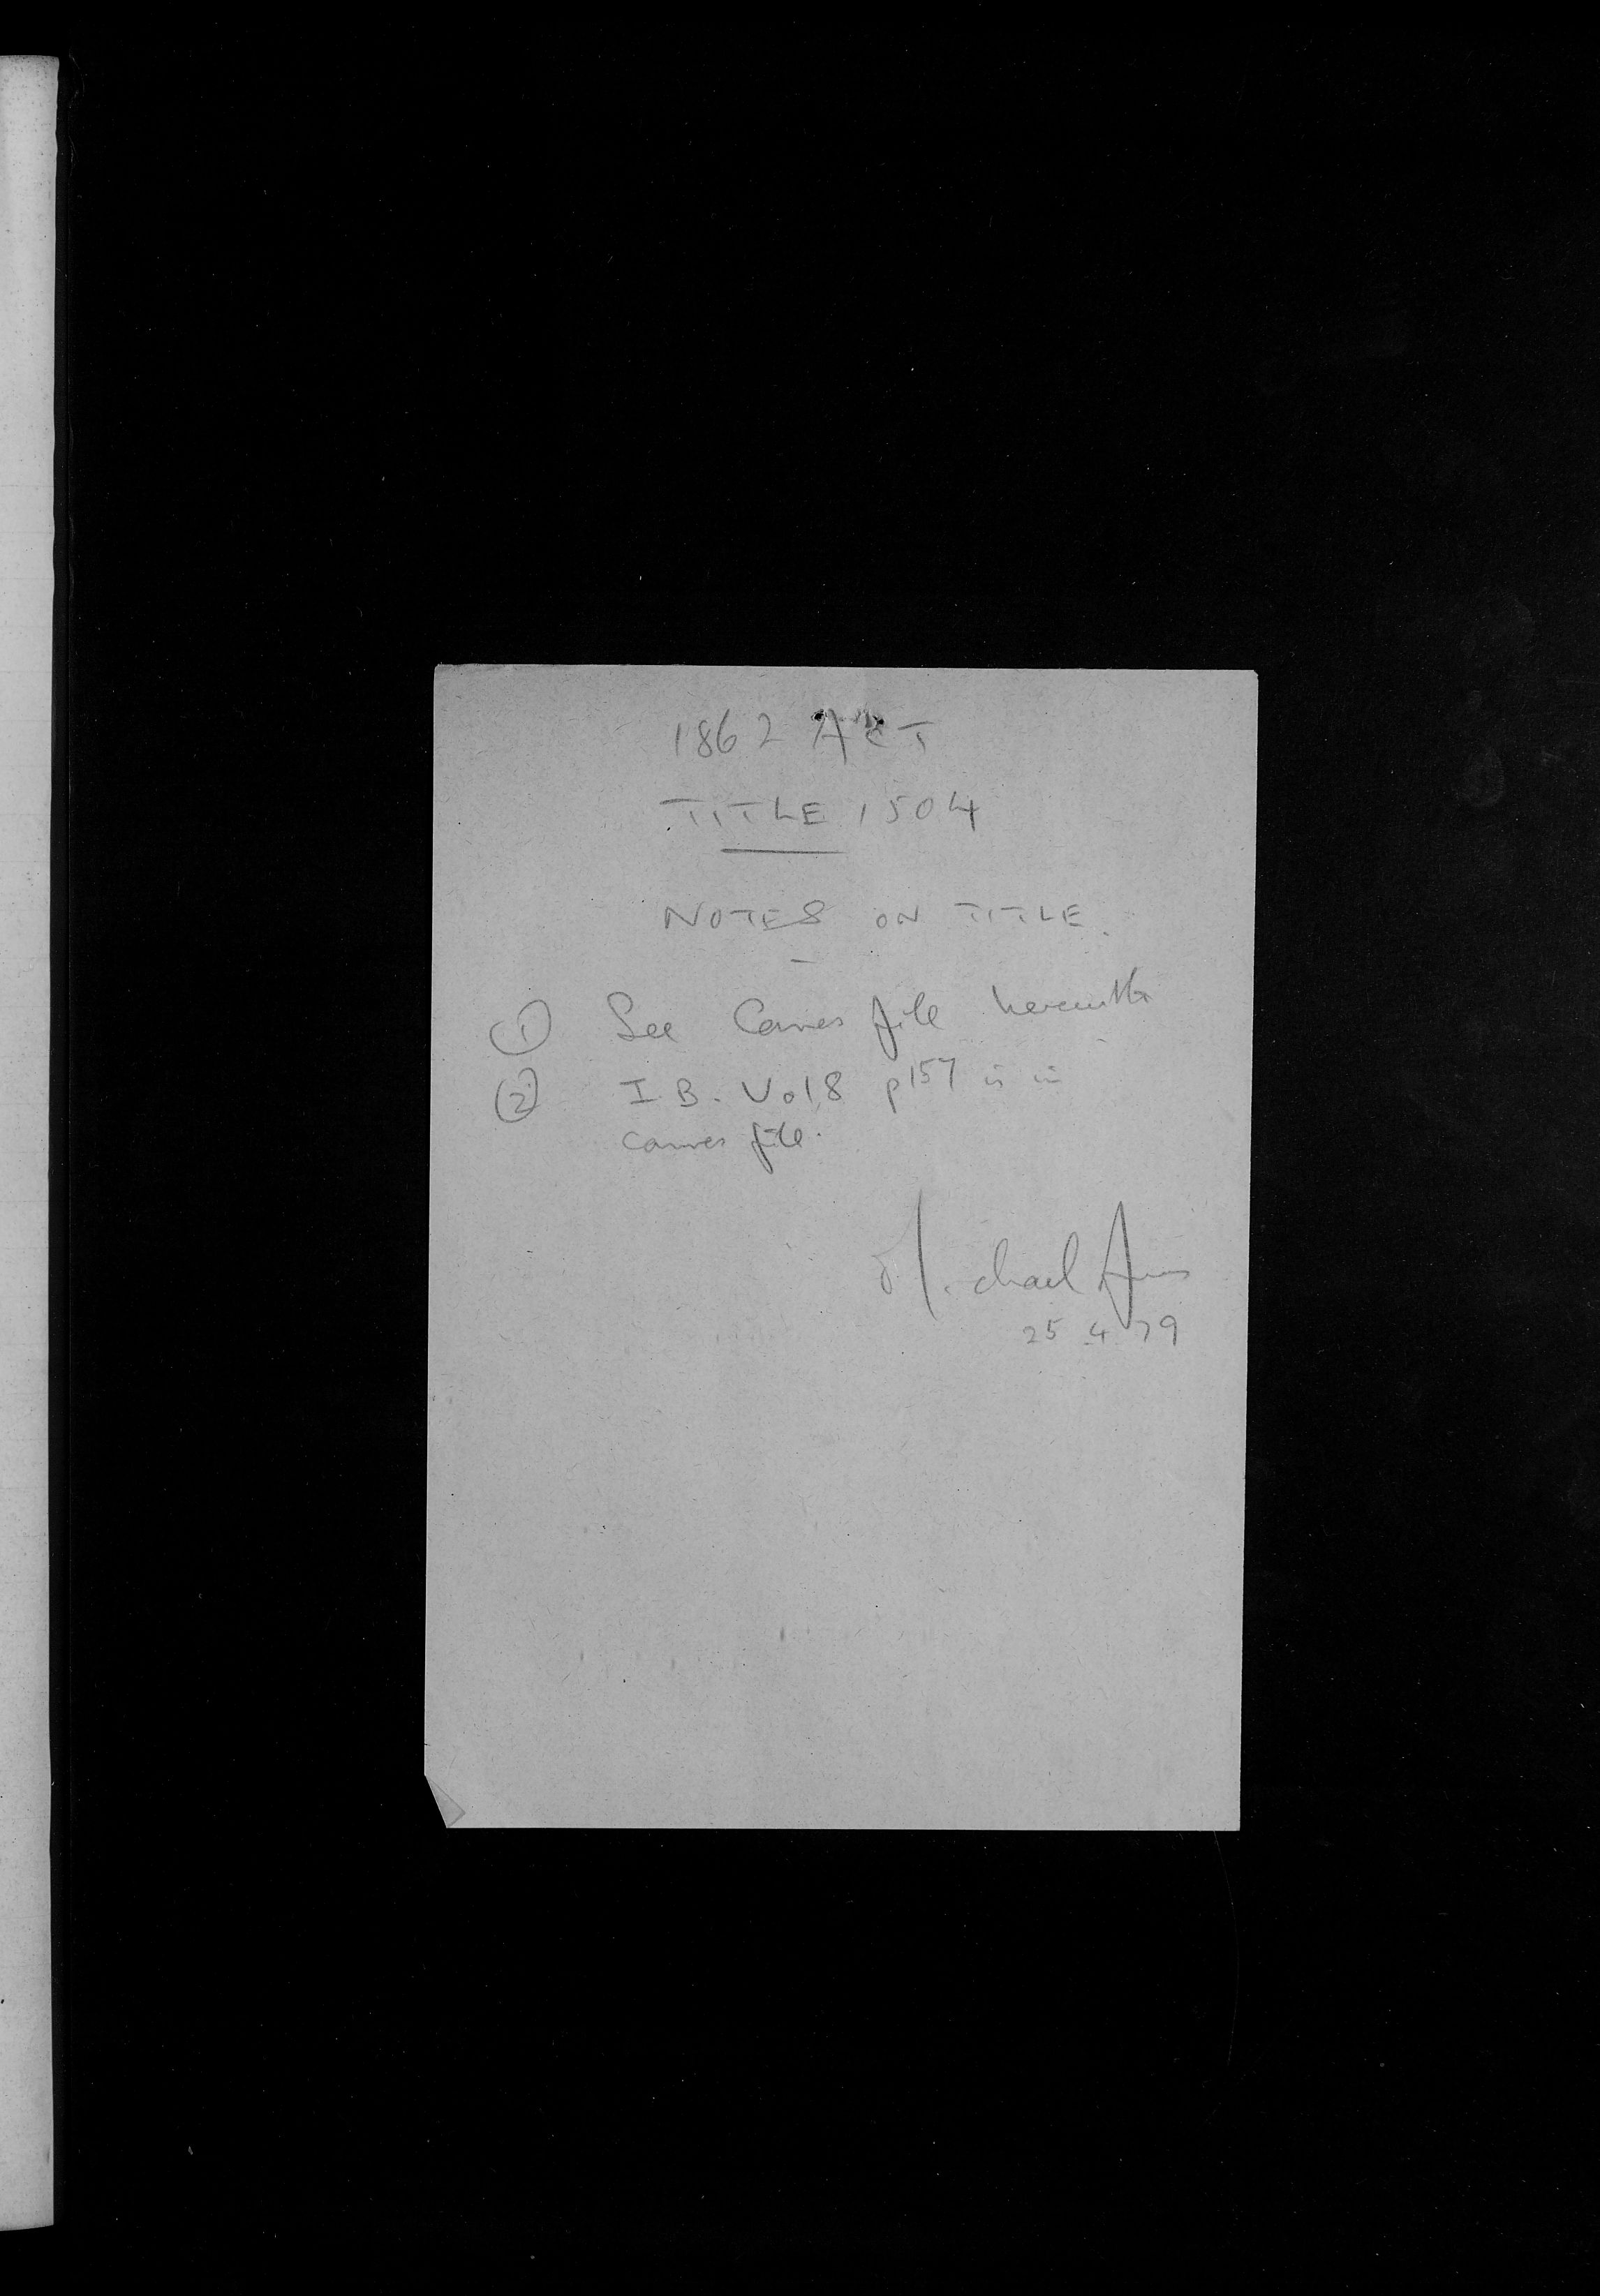 1862 ACT
TITLE 1504
NOTES ON TITLE.
① See file herewith
② I.B. Vol 8 p157 is in
file.
Michael
25.4.79